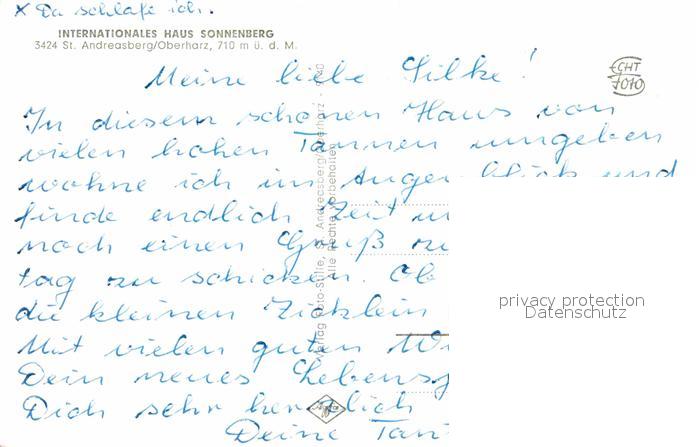 x Da schlafe ich.
INTERNATIONALES HAUS SONNENBERG
3424 St. Andreasberg/Oberharz, 710 m ü. d. M.
ECHT FOTO
Meine liebe Silke!
In diesem schönen Haus von
vielen hohen Tannen umgeben
wohne ich im Augenblick und
finde endlich Zeit
noch einen Gruß
tag zu schicken. Ob
die kleinen Zicklein
Mit vielen guten
Dein neues
Dich sehr herzlich
Deine
Verlag Foto-Stille, St. Andreasberg/Oberharz
Alle Rechte vorbehalten
Agfa
privacy protection
Datenschutz